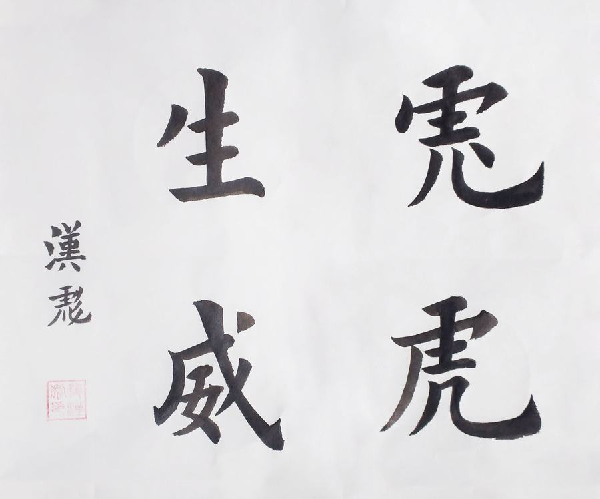 虎虎
生威
漢彪